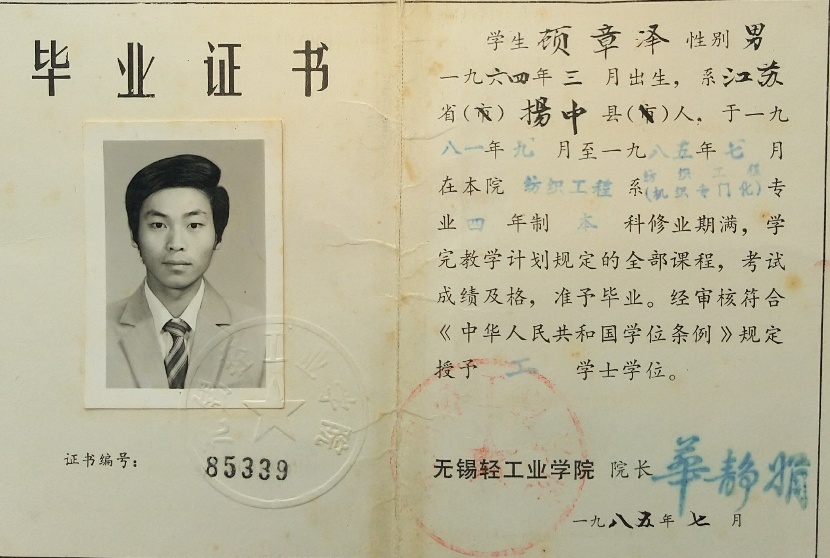 毕业证书
证书编号：
85339
学生 顾章泽 性别 男
一九六四年三月出生，系江苏
省（市）揚中县（市）人，于一九
八一年九月至一九八五年七月
在本院 纺织工程 系 纺织工程
(机织专门化) 专
业 四 年制 本 科修业期满，学
完教学计划规定的全部课程，考试
成绩及格，准予毕业。经审核符合
《中华人民共和国学位条例》规定
授予 工 学士学位。
无锡轻工业学院 院长 華静娟
一九八五年七月